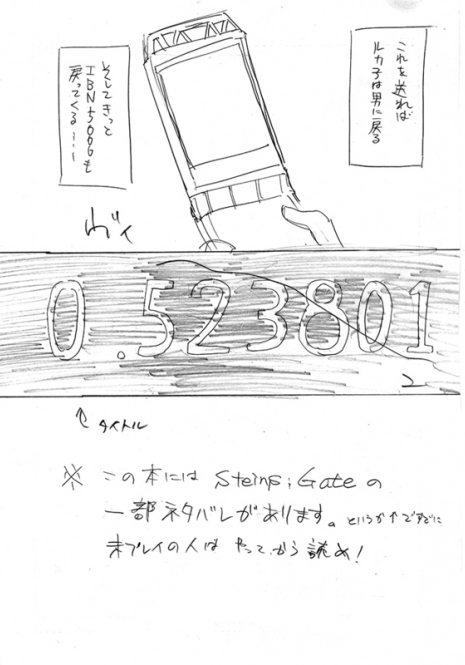 これを送れば
ルカ子は男に戻る
そしてきっと
IBN5000も
戻ってくる……
ヴィ
0.523801
↑タイトル
※この本にはSteins;Gateの
一部ネタバレがあります。というか↑ですでに
未プレイの人はやってから読め!